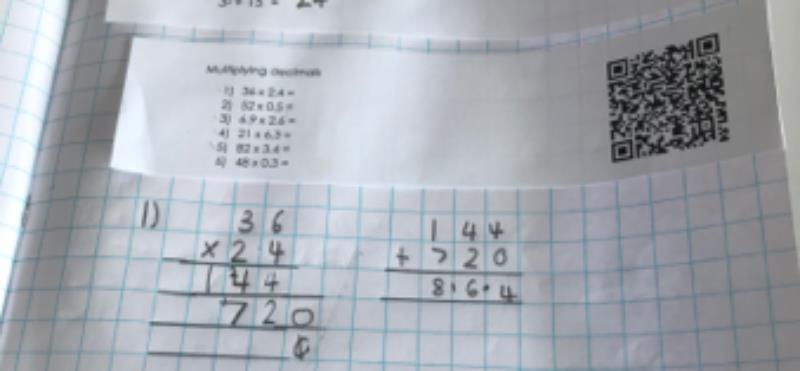 Multiplying decimals
1) 36 x 2.4 =
2) 52 x 0.5 =
3) 6.9 x 2.6 =
4) 21 x 6.3 =
5) 82 x 3.6 =
6) 48 x 0.3 =
1)
36
x 24
144
720
144
+ 720
8.6.4